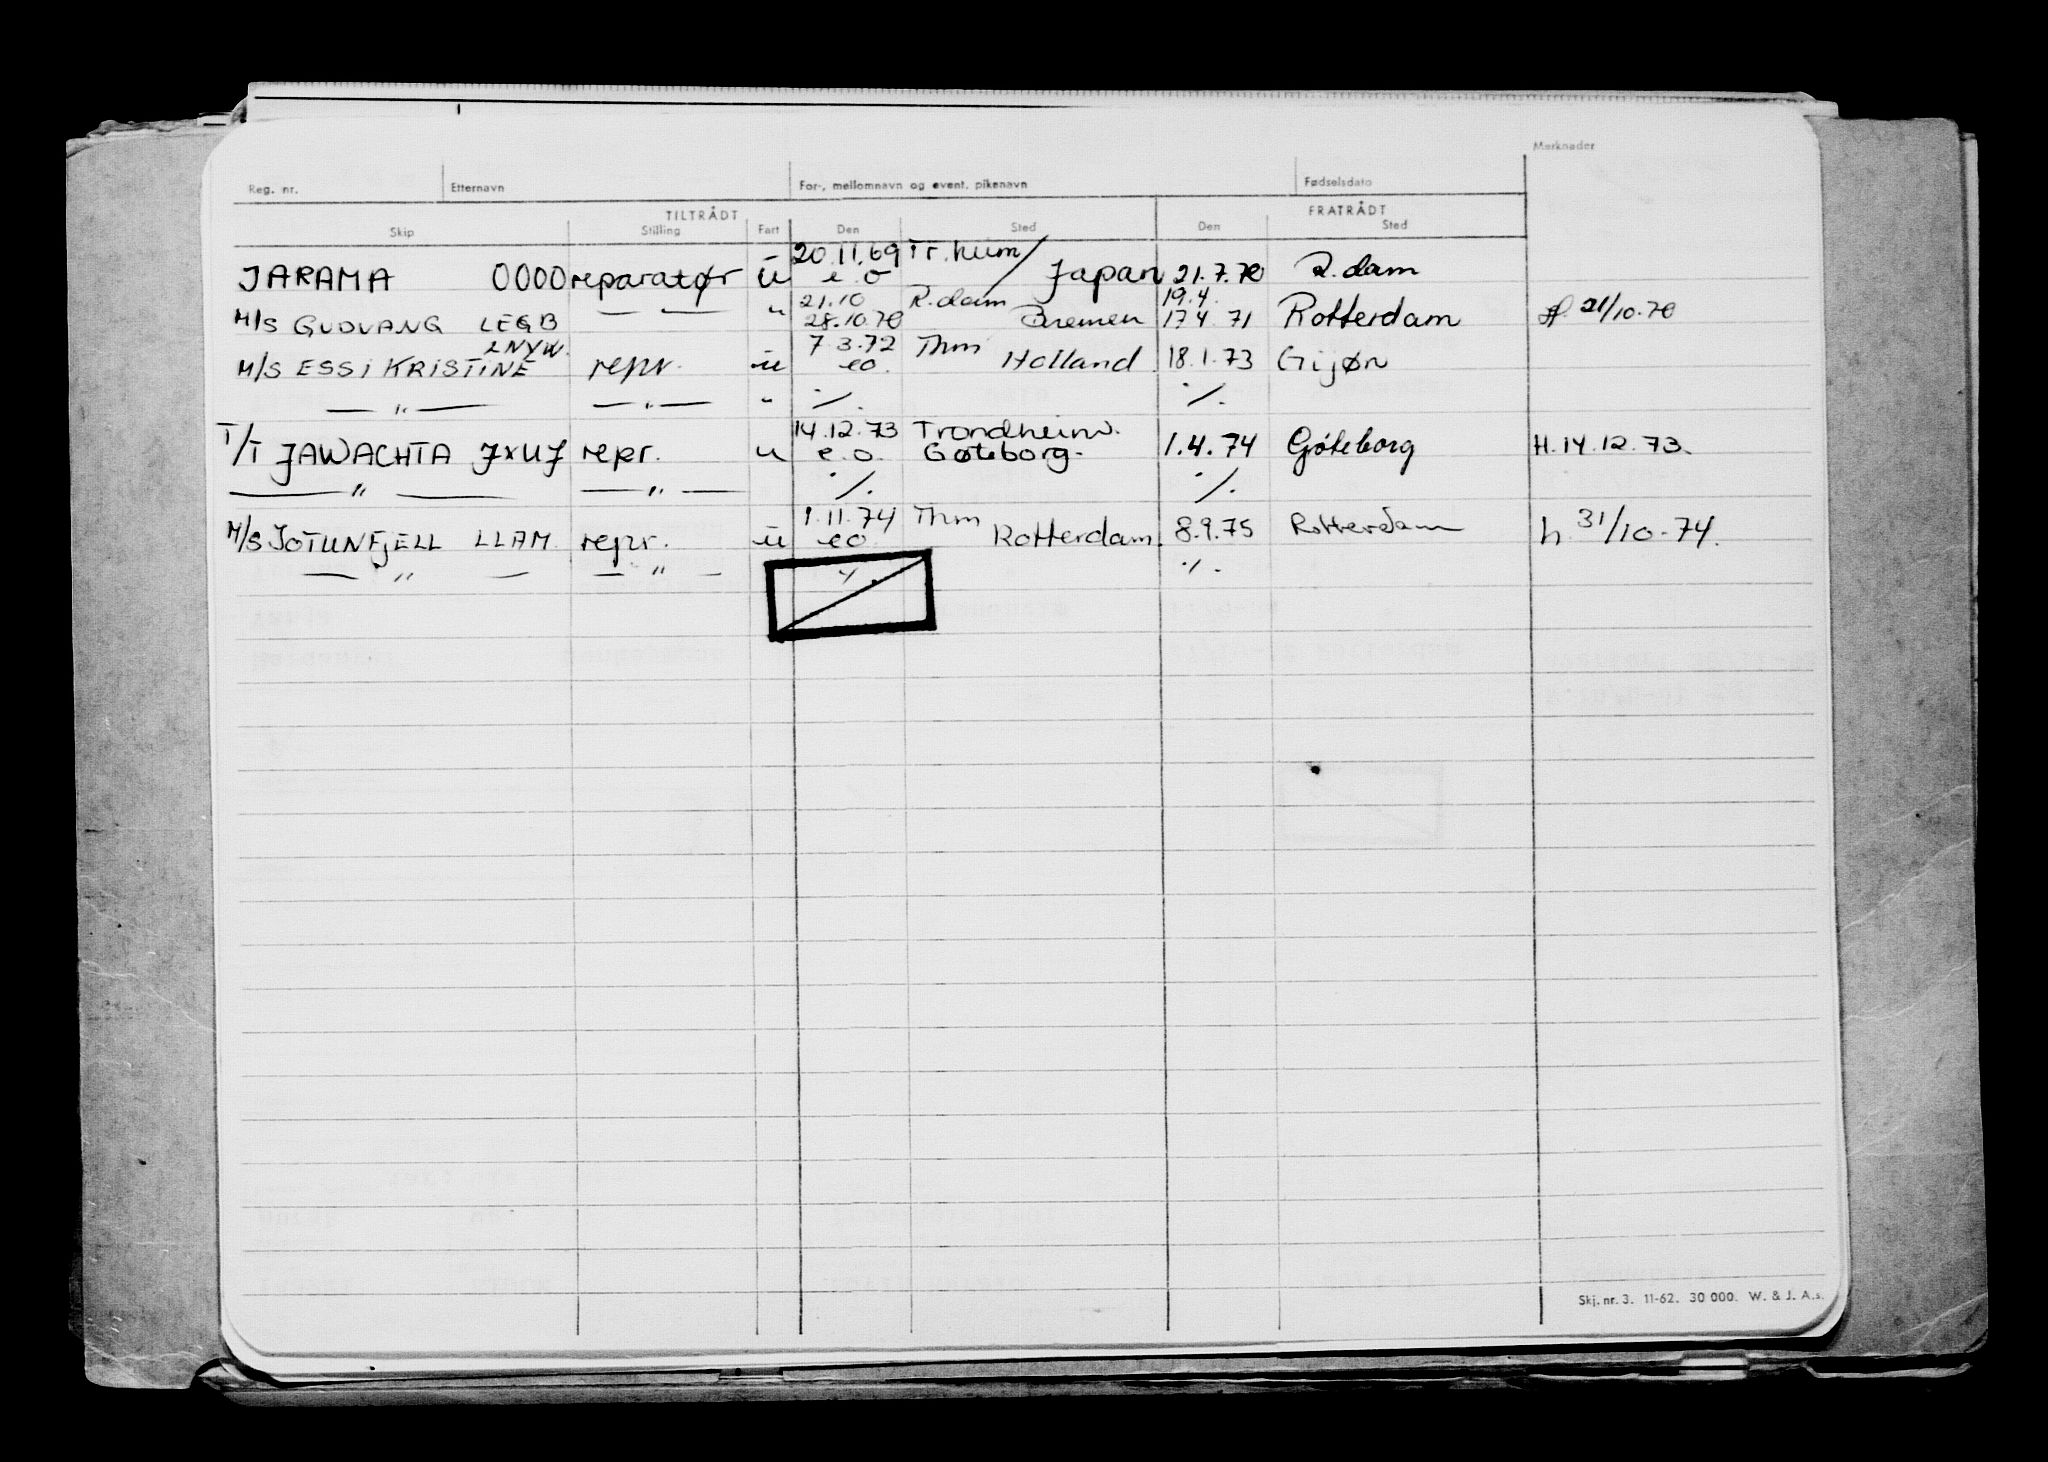 Merknader
Reg. nr. Etternavn For-, mellomnavn og event. pikenavn Fødselsdato
TILTRÅDT FRATRÅDT
Skip Stilling Fart Den Sted Den Sted
20.11.69 Tr.heim/
JARAMA OOOO reparatør u e.o Japan 21.7.70 R.dam
21.10 R.dam 19.4.
M/S GUDVANG LEGB — — " 28.10.70 Bremen 17.4.71 Rotterdam H. 21/10.70
LNYW. 7.3.72 Thm
M/S ESSI KRISTINE repr. u eo. Holland 18.1.73 Gijøn
— " — — " — " ./. ./.
14.12.73 Trondheim.
T/T JAWACHTA JXUJ repr. u e.o. Gøteborg. 1.4.74 Gøteborg H.14.12.73.
— " — — " — ./. ./.
1.11.74 Thm
M/S JOTUNFJELL LLAM repr. u eo Rotterdam. 8.9.75 Rotterdam h. 31/10-74.
— " — — " — ./. ./.
Skj. nr. 3. 11-62. 30 000. W. & J. A.s.